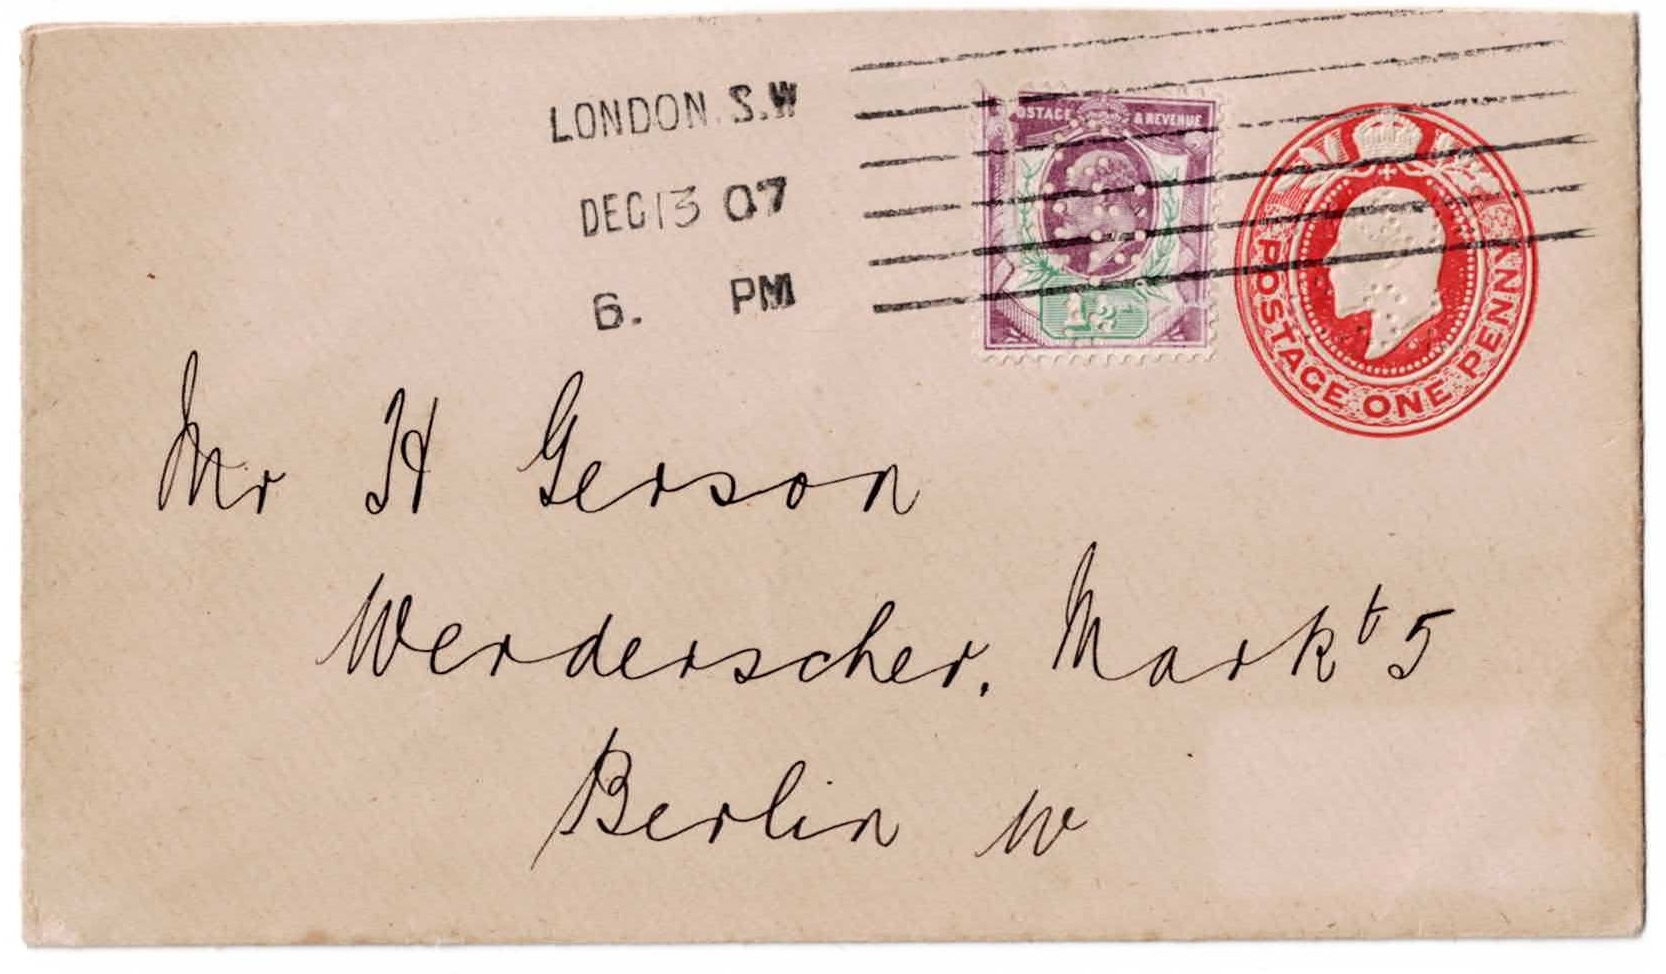 LONDON. S.W
DEC 13 07
6. PM
POSTAGE & REVENUE
1½d
POSTAGE ONE PENNY
Mr H Gerson
Werderscher. Markt 5
Berlin W